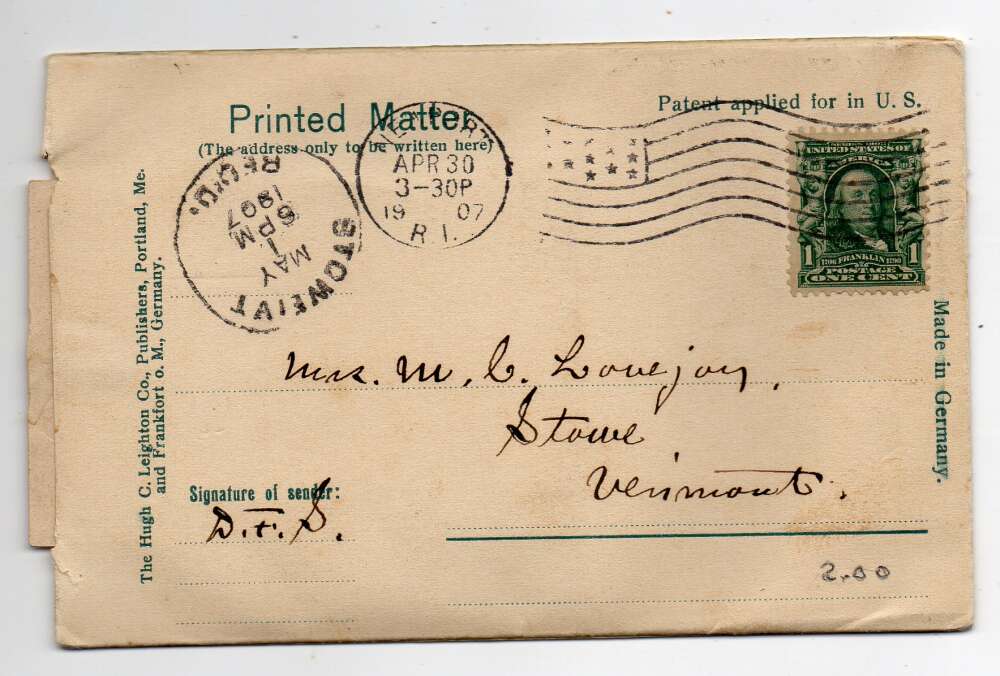 Printed Matter.
(The address only to be written here)
Patent applied for in U. S.
NEWPORT
APR 30
3-30P
19 07
R.I.
STOWE, VT
MAY
1
6 PM
1907
REC'D.
SERIES 1902
UNITED STATES OF
AMERICA
1 1
1706 FRANKLIN 1790
POSTAGE
ONE CENT
The Hugh C. Leighton Co., Publishers, Portland, Me.
and Frankfort o. M., Germany.
Made in Germany.
Mrs. M. C. Lovejoy,
Stowe
Vermont.
Signature of sender:
D.F.S.
2.00